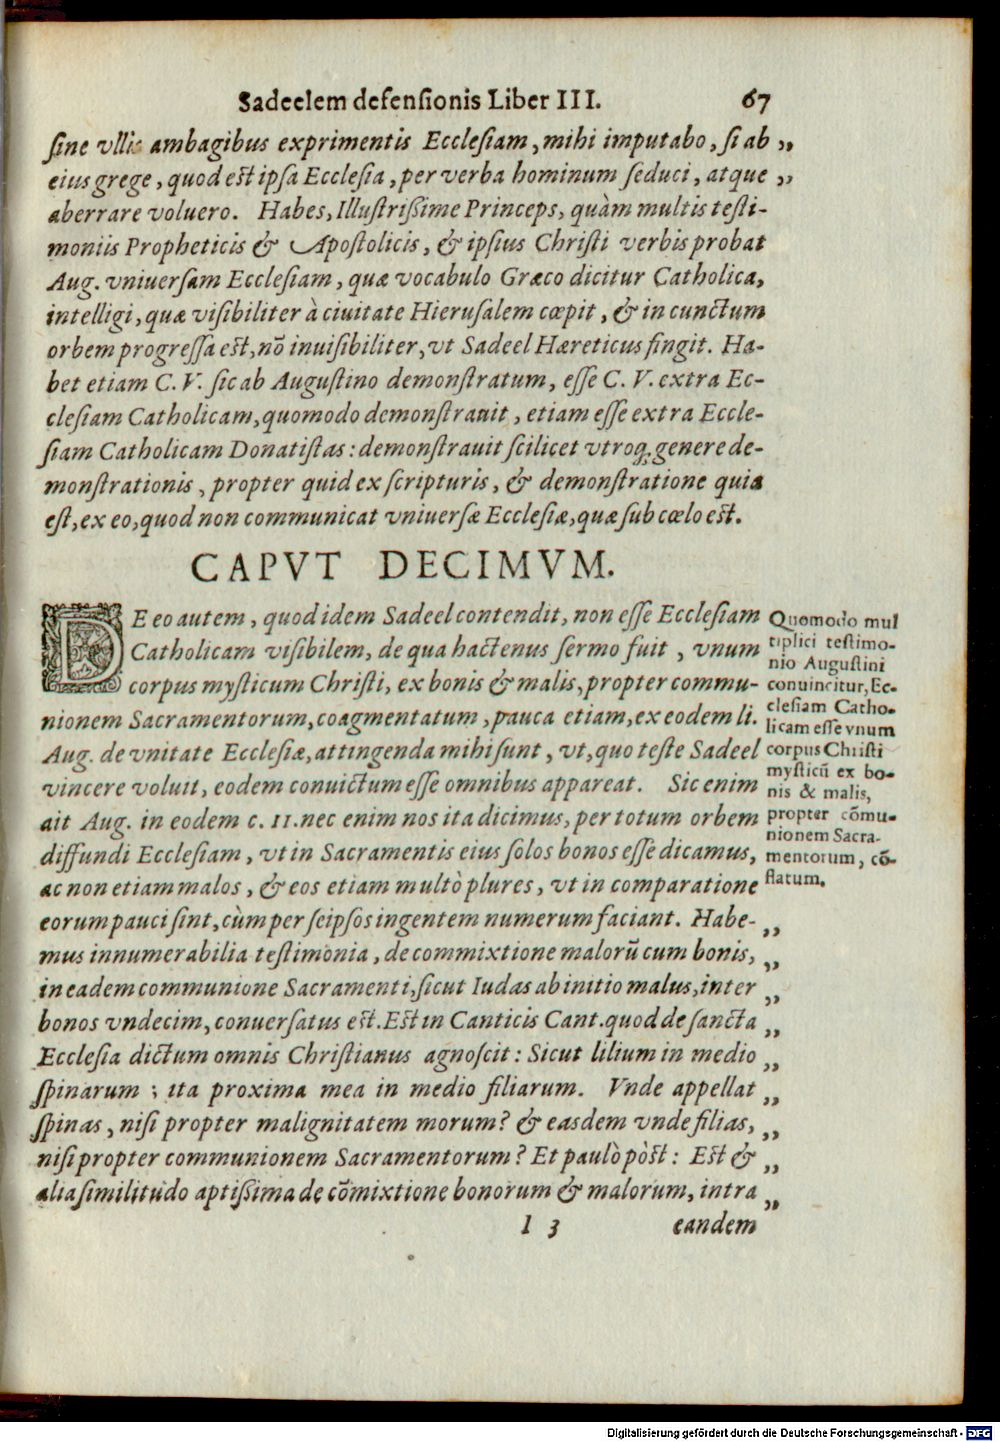 Sadeelem defensionis Liber III. 67
sine vllis ambagibus exprimentis Ecclesiam, mihi imputabo, si ab „
eius grege, quod est ipsa Ecclesia, per verba hominum seduci, atque „
aberrare voluero. Habes, Illustrissime Princeps, quàm multis testi-
moniis Propheticis & Apostolicis, & ipsius Christi verbis probat
Aug. vniuersam Ecclesiam, quæ vocabulo Græco dicitur Catholica,
intelligi, quæ visibiliter à ciuitate Hierusalem cœpit, & in cunctum
orbem progressa est, nō inuisibiliter, vt Sadeel Hæreticus fingit. Ha-
bet etiam C. V. sic ab Augustino demonstratum, esse C. V. extra Ec-
clesiam Catholicam, quomodo demonstrauit, etiam esse extra Eccle-
siam Catholicam Donatistas: demonstrauit scilicet vtroq; genere de-
monstrationis, propter quid ex scripturis, & demonstratione quia
est, ex eo, quod non communicat vniuersæ Ecclesiæ, quæ sub cœlo est.
CAPVT DECIMVM.
DE eo autem, quod idem Sadeel contendit, non esse Ecclesiam
Catholicam visibilem, de qua hactenus sermo fuit, vnum
corpus mysticum Christi, ex bonis & malis, propter commu-
nionem Sacramentorum, coagmentatum, pauca etiam, ex eodem li.
Aug. de vnitate Ecclesiæ, attingenda mihi sunt, vt, quo teste Sadeel
vincere voluit, eodem conuictum esse omnibus appareat. Sic enim
ait Aug. in eodem c. 11. nec enim nos ita dicimus, per totum orbem
diffundi Ecclesiam, vt in Sacramentis eius solos bonos esse dicamus,
ac non etiam malos, & eos etiam multò plures, vt in comparatione
eorum pauci sint, cùm per seipsos ingentem numerum faciant. Habe-
mus innumerabilia testimonia, de commixtione malorū cum bonis, „
in eadem communione Sacramenti, sicut Iudas ab initio malus, inter „
bonos vndecim, conuersatus est. Est in Canticis Cant. quod de sancta „
Ecclesia dictum omnis Christianus agnoscit: Sicut lilium in medio „
spinarum; ita proxima mea in medio filiarum. Vnde appellat „
spinas, nisi propter malignitatem morum? & easdem vnde filias, „
nisi propter communionem Sacramentorum? Et paulò pòst: Est & „
alia similitudo aptissima de cōmixtione bonorum & malorum, intra „
l 3 eandem
Quomodo mul
tiplici testimo-
nio Augustini
conuincitur, Ec-
clesiam Catho-
licam esse vnum
corpus Christi
mysticū ex bo-
nis & malis,
propter cōmu-
nionem Sacra-
mentorum, cō-
flatum.
Digitalisierung gefördert durch die Deutsche Forschungsgemeinschaft - DFG